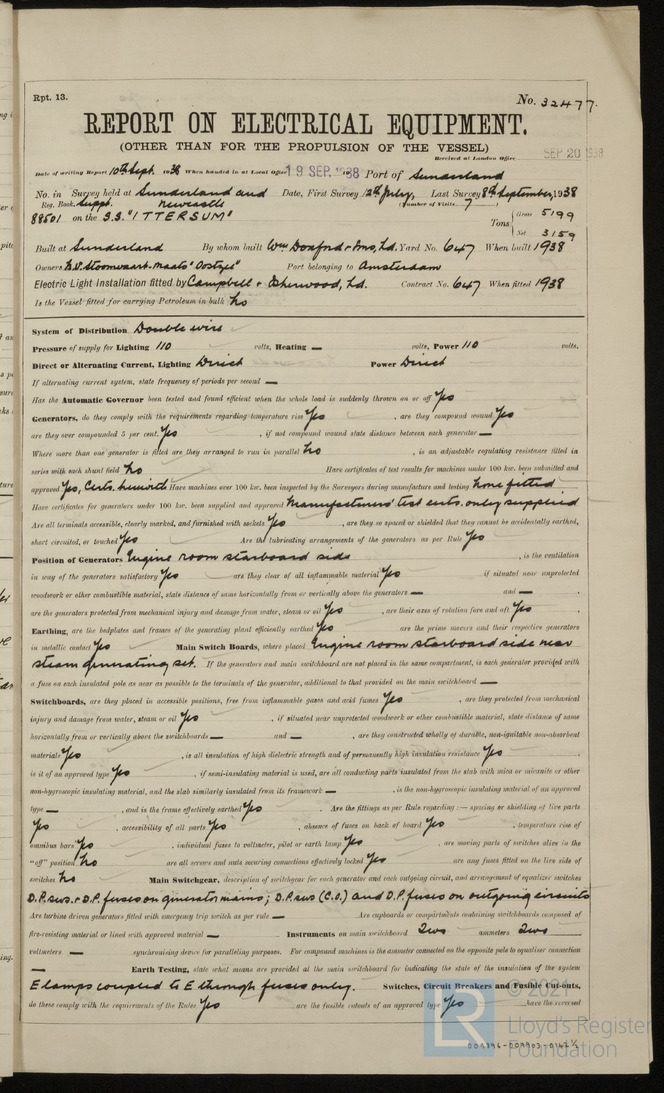 Rpt. 13.
No. 32477.
REPORT ON ELECTRICAL EQUIPMENT.
(OTHER THAN FOR THE PROPULSION OF THE VESSEL)
Received at London Office SEP 20 1938
Date of writing Report 10th Sept. 1938 When handed in at Local Office 19 SEP. 1938 Port of Sunderland
No. in Survey held at Sunderland and Newcastle Date, First Survey 12th July, Last Survey 8th September, 1938
Reg. Book. Suppt. (Number of Visits 7)
88501 on the S.S. "ITTERSUM" Tons { Gross 5199
Net 3159
Built at Sunderland By whom built Wm Doxford & Sons, Ld. Yard No. 647 When built 1938
Owners N.V. Stoomvaart-Maats "Oostzee" Port belonging to Amsterdam
Electric Light Installation fitted by Campbell & Isherwood, Ld. Contract No. 647 When fitted 1938
Is the Vessel fitted for carrying Petroleum in bulk No
System of Distribution Double wire
Pressure of supply for Lighting 110 volts, Heating — volts, Power 110 volts.
Direct or Alternating Current, Lighting Direct Power Direct
If alternating current system, state frequency of periods per second —
Has the Automatic Governor been tested and found efficient when the whole load is suddenly thrown on or off Yes
Generators, do they comply with the requirements regarding temperature rise Yes , are they compound wound Yes
are they over compounded 5 per cent. Yes , if not compound wound state distance between each generator —
Where more than one generator is fitted are they arranged to run in parallel No , is an adjustable regulating resistance fitted in
series with each shunt field No Have certificates of test results for machines under 100 kw. been submitted and
approved Yes, Certs. herewith Have machines over 100 kw. been inspected by the Surveyors during manufacture and testing None fitted
Have certificates for generators under 100 kw. been supplied and approved Manufacturers' test certs. only supplied
Are all terminals accessible, clearly marked, and furnished with sockets Yes , are they so spaced or shielded that they cannot be accidentally earthed,
short circuited, or touched Yes Are the lubricating arrangements of the generators as per Rule Yes
Position of Generators Engine room starboard side , is the ventilation
in way of the generators satisfactory Yes are they clear of all inflammable material Yes if situated near unprotected
woodwork or other combustible material, state distance of same horizontally from or vertically above the generators — and —
are the generators protected from mechanical injury and damage from water, steam or oil Yes , are their axes of rotation fore and aft Yes
Earthing, are the bedplates and frames of the generating plant efficiently earthed Yes are the prime movers and their respective generators
in metallic contact Yes Main Switch Boards, where placed Engine room starboard side near
steam generating set. If the generators and main switchboard are not placed in the same compartment, is each generator provided with
a fuse on each insulated pole as near as possible to the terminals of the generator, additional to that provided on the main switchboard —
Switchboards, are they placed in accessible positions, free from inflammable gases and acid fumes Yes , are they protected from mechanical
injury and damage from water, steam or oil Yes , if situated near unprotected woodwork or other combustible material, state distance of same
horizontally from or vertically above the switchboards — and — , are they constructed wholly of durable, non-ignitable non-absorbent
materials Yes , is all insulation of high dielectric strength and of permanently high insulation resistance Yes
is it of an approved type Yes , if semi-insulating material is used, are all conducting parts insulated from the slab with mica or micanite or other
non-hygroscopic insulating material, and the slab similarly insulated from its framework — , is the non-hygroscopic insulating material of an approved
type — , and is the frame effectively earthed Yes Are the fittings as per Rule regarding :— spacing or shielding of live parts
Yes , accessibility of all parts Yes , absence of fuses on back of board Yes , temperature rise of
omnibus bars Yes , individual fuses to voltmeter, pilot or earth lamp Yes , are moving parts of switches alive in the
"off" position No are all screws and nuts securing connections effectively locked Yes are any fuses fitted on the live side of
switches No Main Switchgear, description of switchgear for each generator and each outgoing circuit, and arrangement of equalizer switches
D.P. sws. & D.P. fuses on generator mains; D.P. sws (C.O.) and D.P. fuses on outgoing circuits
Are turbine driven generators fitted with emergency trip switch as per rule — Are cupboards or compartments containing switchboards composed of
fire-resisting material or lined with approved material — Instruments on main switchboard Two ammeters Two
voltmeters — synchronising device for paralleling purposes. For compound machines is the ammeter connected on the opposite pole to equaliser connection
— Earth Testing, state what means are provided at the main switchboard for indicating the state of the insulation of the system
E lamps coupled to E through fuses only. Switches, Circuit Breakers and Fusible Cut-outs,
do these comply with the requirements of the Rules Yes are the fusible cutouts of an approved type Yes have the reversed
© 2021
Lloyd's Register
Foundation
009896-009903-0142½